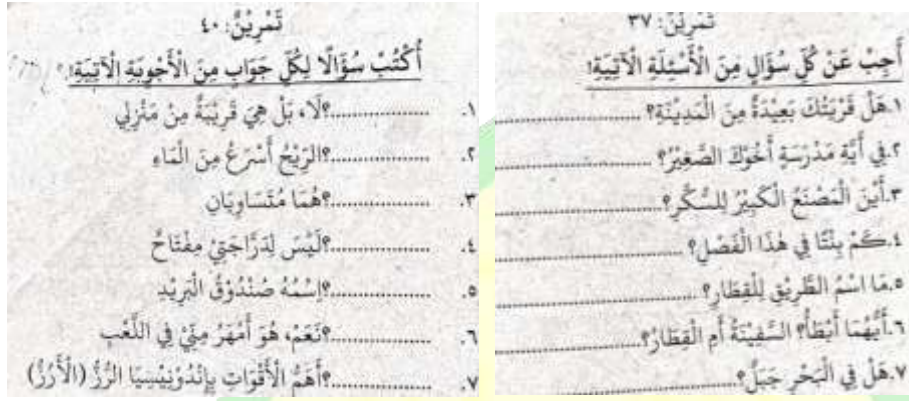 تَمْرِيْنٌ: ٣٧
أَجِبْ عَنْ كُلِّ سُؤَالٍ مِنَ الْأَسْئِلَةِ الْآتِيَةِ!
١.هَلْ قَرْيَتُكَ بَعِيْدَةٌ مِنَ الْمَدِيْنَةِ؟ ....................
٢.فِي أَيَّةِ مَدْرَسَةٍ أَخُوْكَ الصَّغِيْرُ؟ ....................
٣.أَيْنَ الْمَصْنَعُ الْكَبِيْرُ لِلسُّكَّرِ؟ ....................
٤.كَمْ بِنْتًا فِي هٰذَا الْفَصْلِ؟ ....................
٥.مَا اسْمُ الطَّرِيْقِ لِلْقِطَارِ؟ ....................
٦.أَيُّهُمَا أَبْطَأُ؟ السَّفِيْنَةُ أَمِ الْقِطَارُ؟ ....................
٧.هَلْ فِي الْبَحْرِ جَبَلٌ؟ ....................
تَمْرِيْنٌ: ٤٠
أُكْتُبْ سُؤَالًا لِكُلِّ جَوَابٍ مِنَ الْأَجْوِبَةِ الْآتِيَةِ!
١. ....................؟لَا، بَلْ هِيَ قَرِيْبَةٌ مِنْ مَنْزِلِي
٢. ....................؟الرِّيْحُ أَسْرَعُ مِنَ الْمَاءِ
٣. ....................؟هُمَا مُتَسَاوِيَانِ
٤. ....................؟لَيْسَ لِدَرَّاجَتِيْ مِفْتَاحٌ
٥. ....................؟اِسْمُهُ صُنْدُوْقُ الْبَرِيْدِ
٦. ....................؟نَعَمْ، هُوَ أَمْهَرُ مِنِّيْ فِي اللَّعْبِ
٧. ....................؟أَهَمُّ الْأَقْوَاتِ بِإِنْدُوْنِيْسِيَا الرُّزُّ (الْأَرُزُّ)